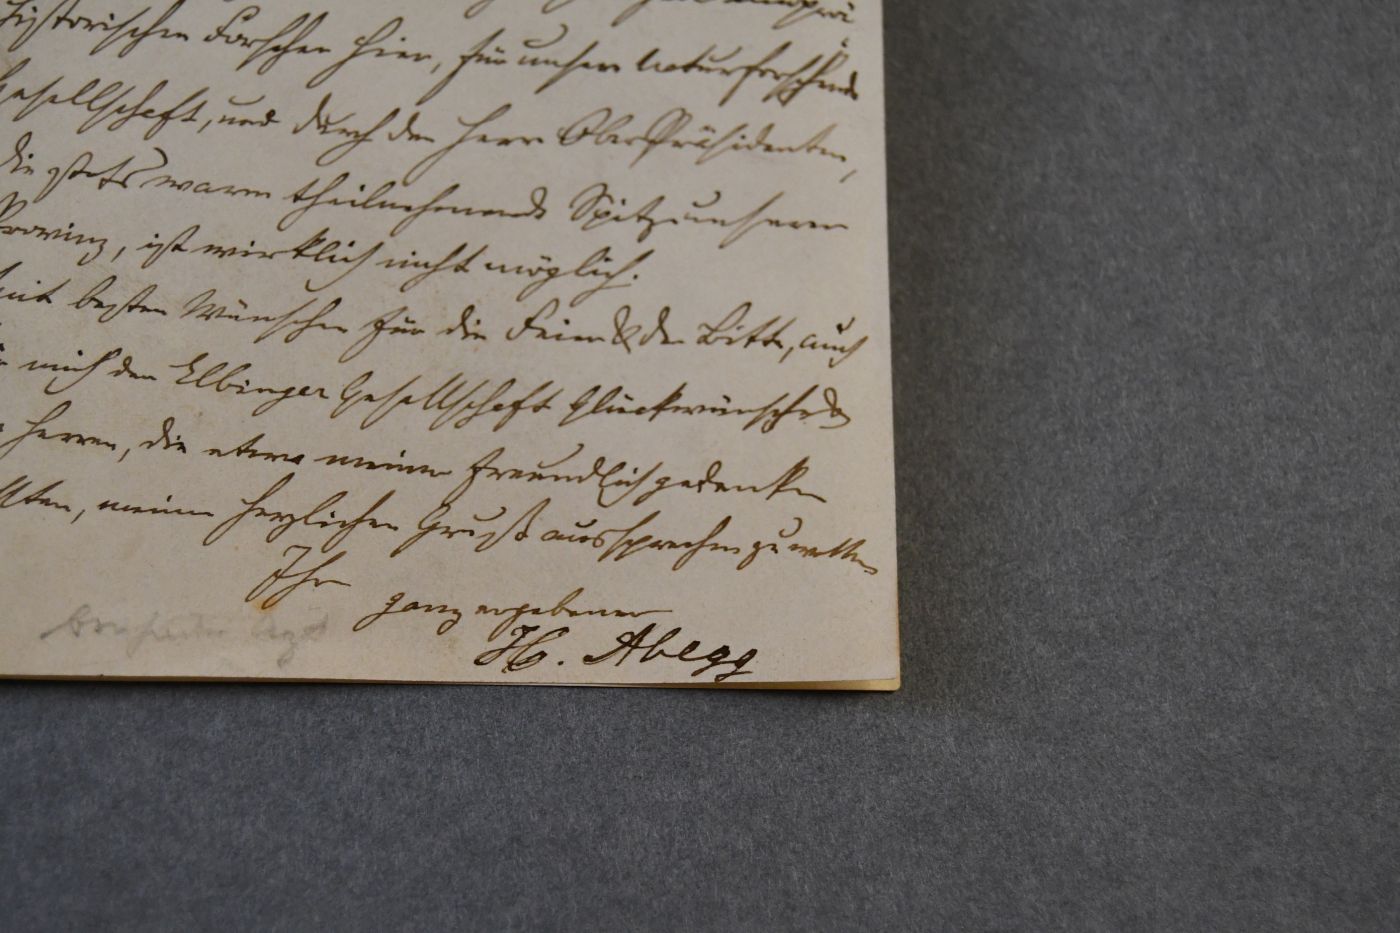 historischen Forscher hier, für unsere Naturforschende
Gesellschaft, und durch den Herrn OberPräsidenten,
die stets warm theilnehmende Spitze unserer
Provinz, ist wirklich nicht möglich.
mit besten Wünschen für die Feier & der Bitte, auch
mich der Elbinger Gesellschaft Glückwünsche &
Herren, die etwa meiner freundlich gedenken
meinen herzlichen Gruß aussprechen zu wollen
Ihr
ganz ergebener
H. Abegg